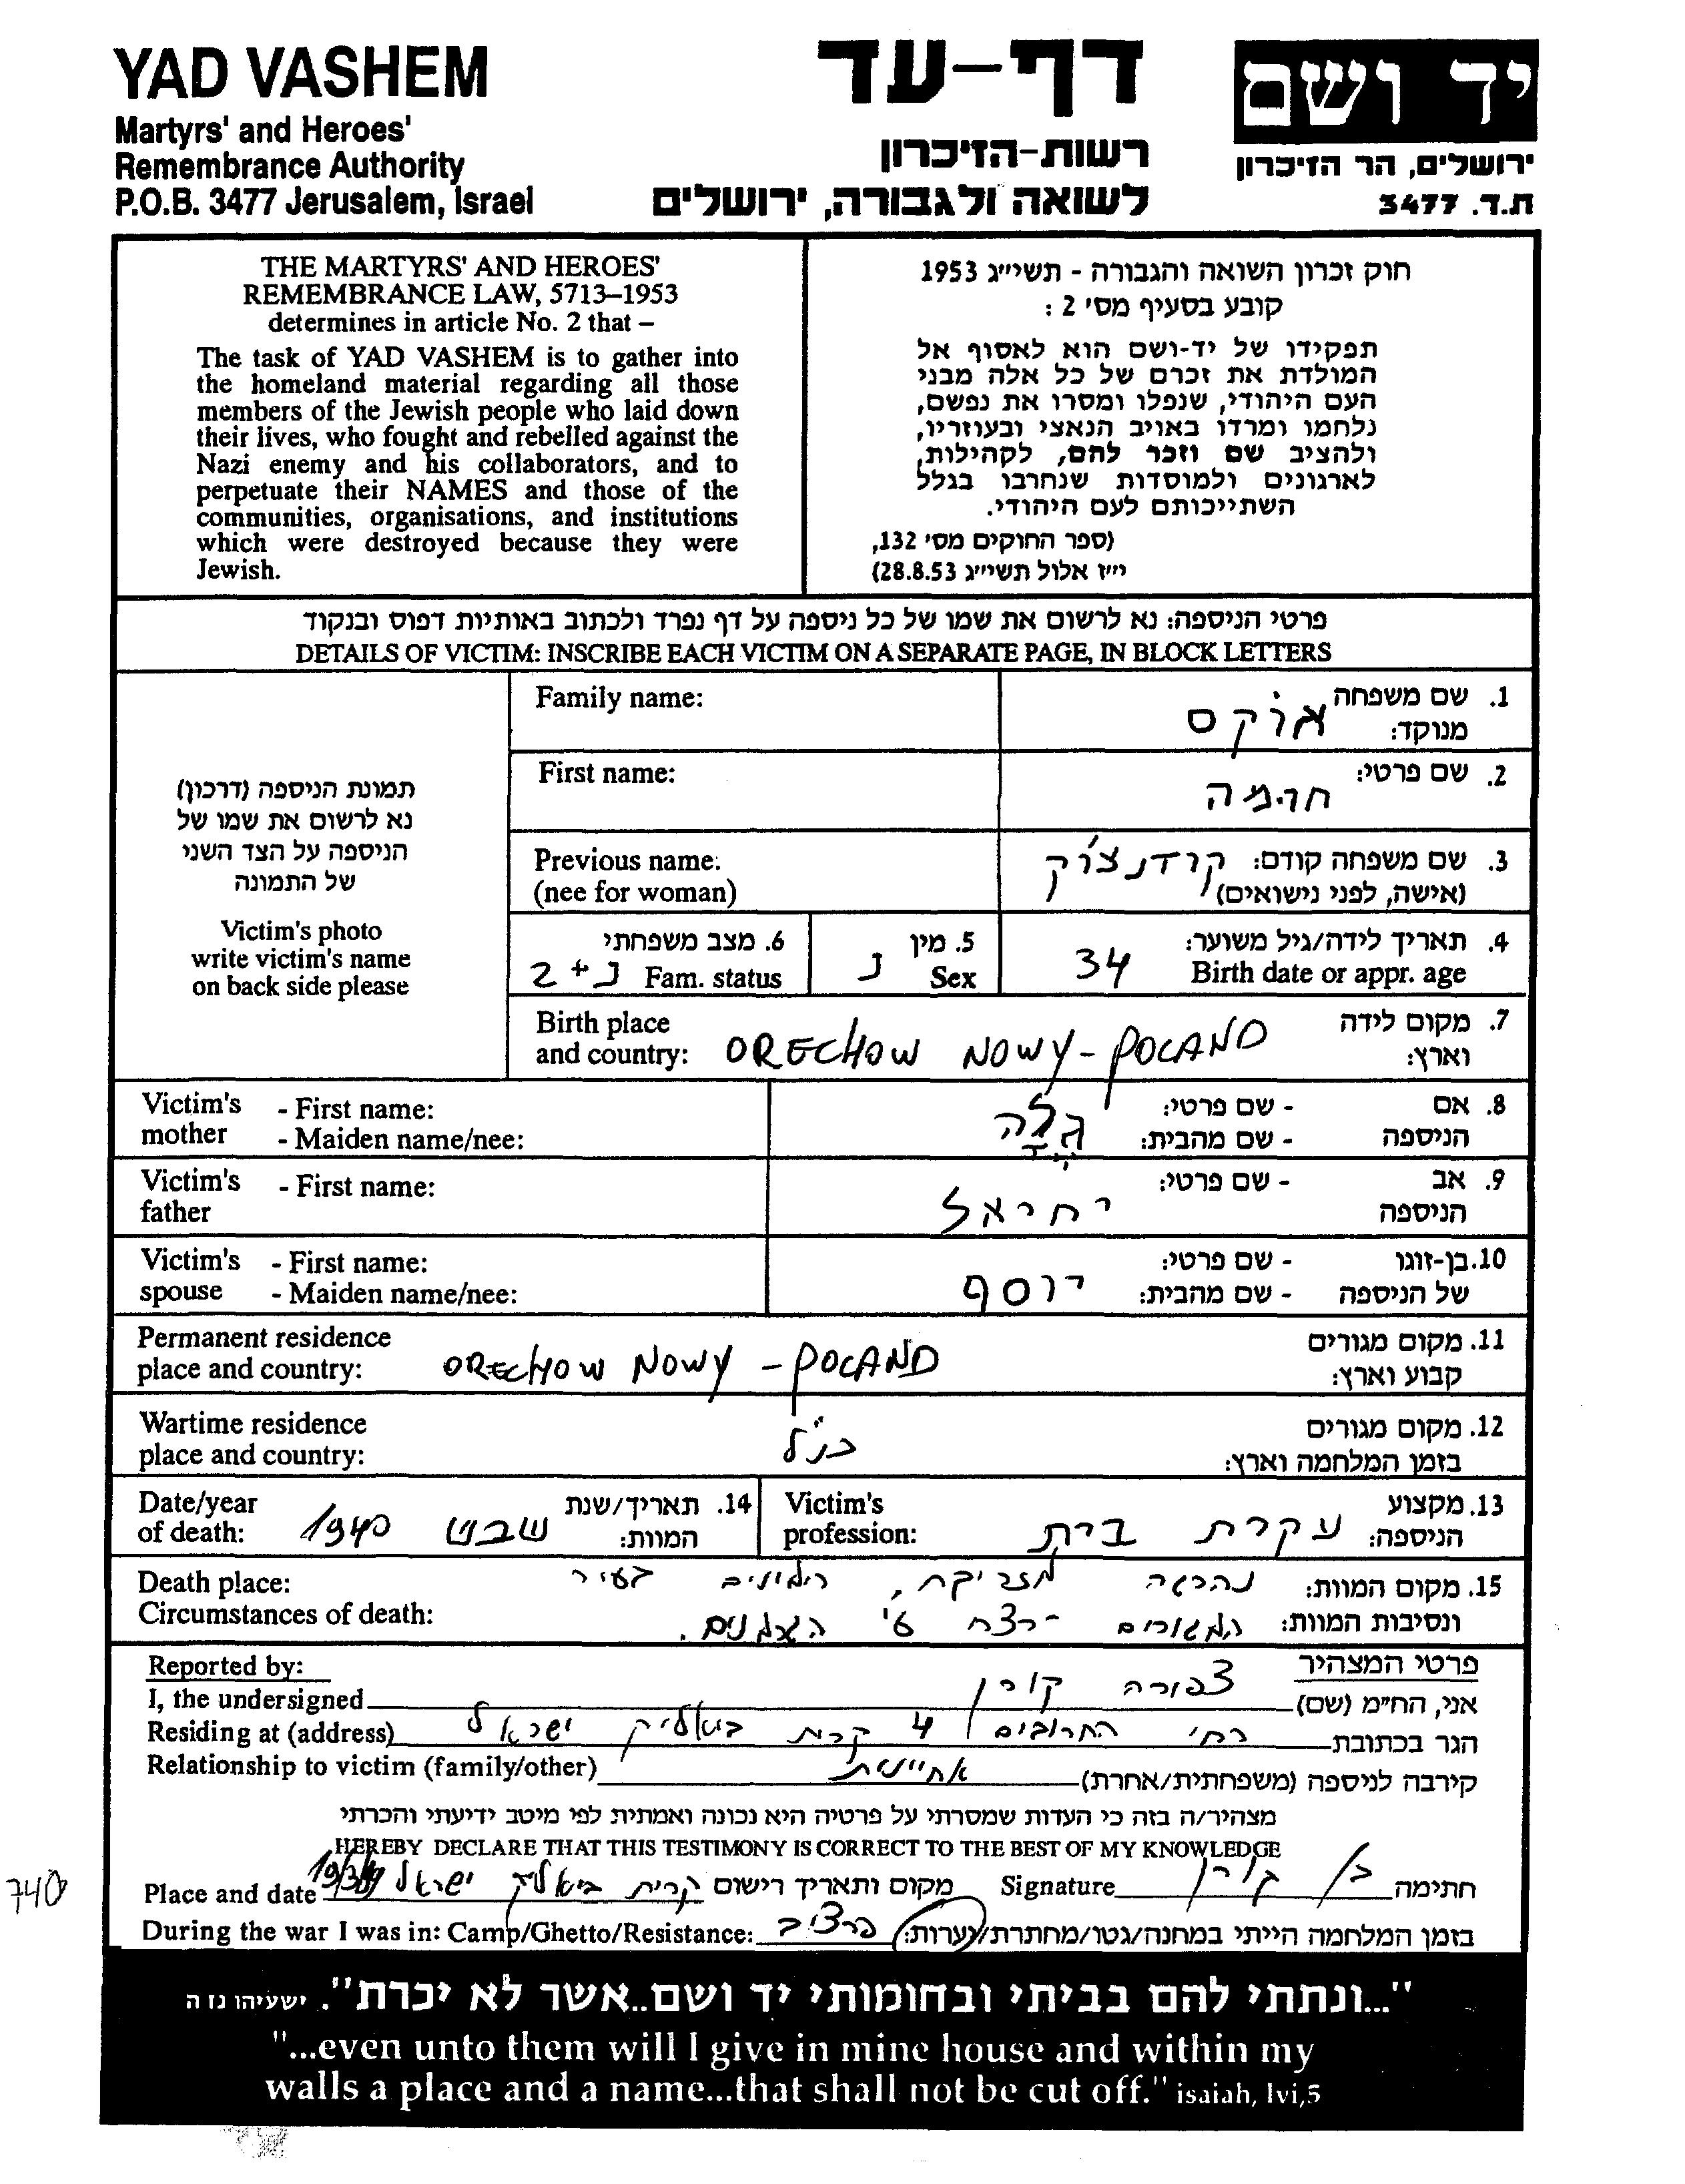 YAD VASHEM
Martyrs' and Heroes'
Remembrance Authority
P.O.B. 3477 Jerusalem, Israel
דף-עד
רשות-הזיכרון
לשואה ולגבורה, ירושלים
יד ושם
ירושלים, הר הזיכרון
ת.ד. 3477
THE MARTYRS' AND HEROES'
REMEMBRANCE LAW, 5713–1953
determines in article No. 2 that –
The task of YAD VASHEM is to gather into
the homeland material regarding all those
members of the Jewish people who laid down
their lives, who fought and rebelled against the
Nazi enemy and his collaborators, and to
perpetuate their NAMES and those of the
communities, organisations, and institutions
which were destroyed because they were
Jewish.
חוק זכרון השואה והגבורה - תשי״ג 1953
קובע בסעיף מס' 2 :
תפקידו של יד-ושם הוא לאסוף אל
המולדת את זכרם של כל אלה מבני
העם היהודי, שנפלו ומסרו את נפשם,
נלחמו ומרדו באויב הנאצי ובעוזריו,
ולהציב שם וזכר להם, לקהילות,
לארגונים ולמוסדות שנחרבו בגלל
השתייכותם לעם היהודי.
(ספר החוקים מס' 132,
י״ז אלול תשי״ג 28.8.53)
פרטי הניספה: נא לרשום את שמו של כל ניספה על דף נפרד ולכתוב באותיות דפוס ובנקוד
DETAILS OF VICTIM: INSCRIBE EACH VICTIM ON A SEPARATE PAGE, IN BLOCK LETTERS
תמונת הניספה (דרכון)
נא לרשום את שמו של
הניספה על הצד השני
של התמונה
Victim's photo
write victim's name
on back side please
Family name:
1. שם משפחה
מנוקד: אוקס
First name:
2. שם פרטי:
Previous name:
(nee for woman)
3. שם משפחה קודם:
(אישה, לפני נישואים)
4. תאריך לידה/גיל משוער: 34
Birth date or appr. age
5. מין
Sex נ
6. מצב משפחתי
Fam. status נ + 2
Birth place
and country: ORECHOW NOWY - POLAND
7. מקום לידה
וארץ:
Victim's mother - First name:
- Maiden name/nee:
8. אם הניספה - שם פרטי:
- שם מהבית:
Victim's father - First name:
9. אב הניספה - שם פרטי:
יחיאל
Victim's spouse - First name:
- Maiden name/nee:
10. בן-זוגו של הניספה - שם פרטי:
- שם מהבית: יוסף
Permanent residence
place and country: ORECHOW NOWY - POLAND
11. מקום מגורים
קבוע וארץ:
Wartime residence
place and country:
כנ"ל
12. מקום מגורים
בזמן המלחמה וארץ:
13. מקצוע
הניספה: עקרת בית
Victim's
profession:
14. תאריך/שנת
המוות: שבט 1940
Date/year
of death:
Death place:
Circumstances of death:
15. מקום המוות: נהרגה
ונסיבות המוות: המגורים - רצח ע"י
Reported by:
פרטי המצהיר
I, the undersigned
אני, הח״מ (שם) צפורה קורן
Residing at (address)
הגר בכתובת רח' החרובים 4 קרית ביאליק ישראל
Relationship to victim (family/other)
קירבה לניספה (משפחתית/אחרת) אחיינית
מצהיר/ה בזה כי העדות שמסרתי על פרטיה היא נכונה ואמתית לפי מיטב ידיעתי והכרתי
HEREBY DECLARE THAT THIS TESTIMONY IS CORRECT TO THE BEST OF MY KNOWLEDGE
Place and date
מקום ותאריך רישום קרית ביאליק ישראל
Signature
חתימה צ/ קורן
740
During the war I was in: Camp/Ghetto/Resistance:
בזמן המלחמה הייתי במחנה/גטו/מחתרת/יערות:
"...ונתתי להם בביתי ובחומותי יד ושם..אשר לא יכרת". ישעיהו נז ה
"...even unto them will I give in mine house and within my
walls a place and a name...that shall not be cut off." isaiah, lvi,5